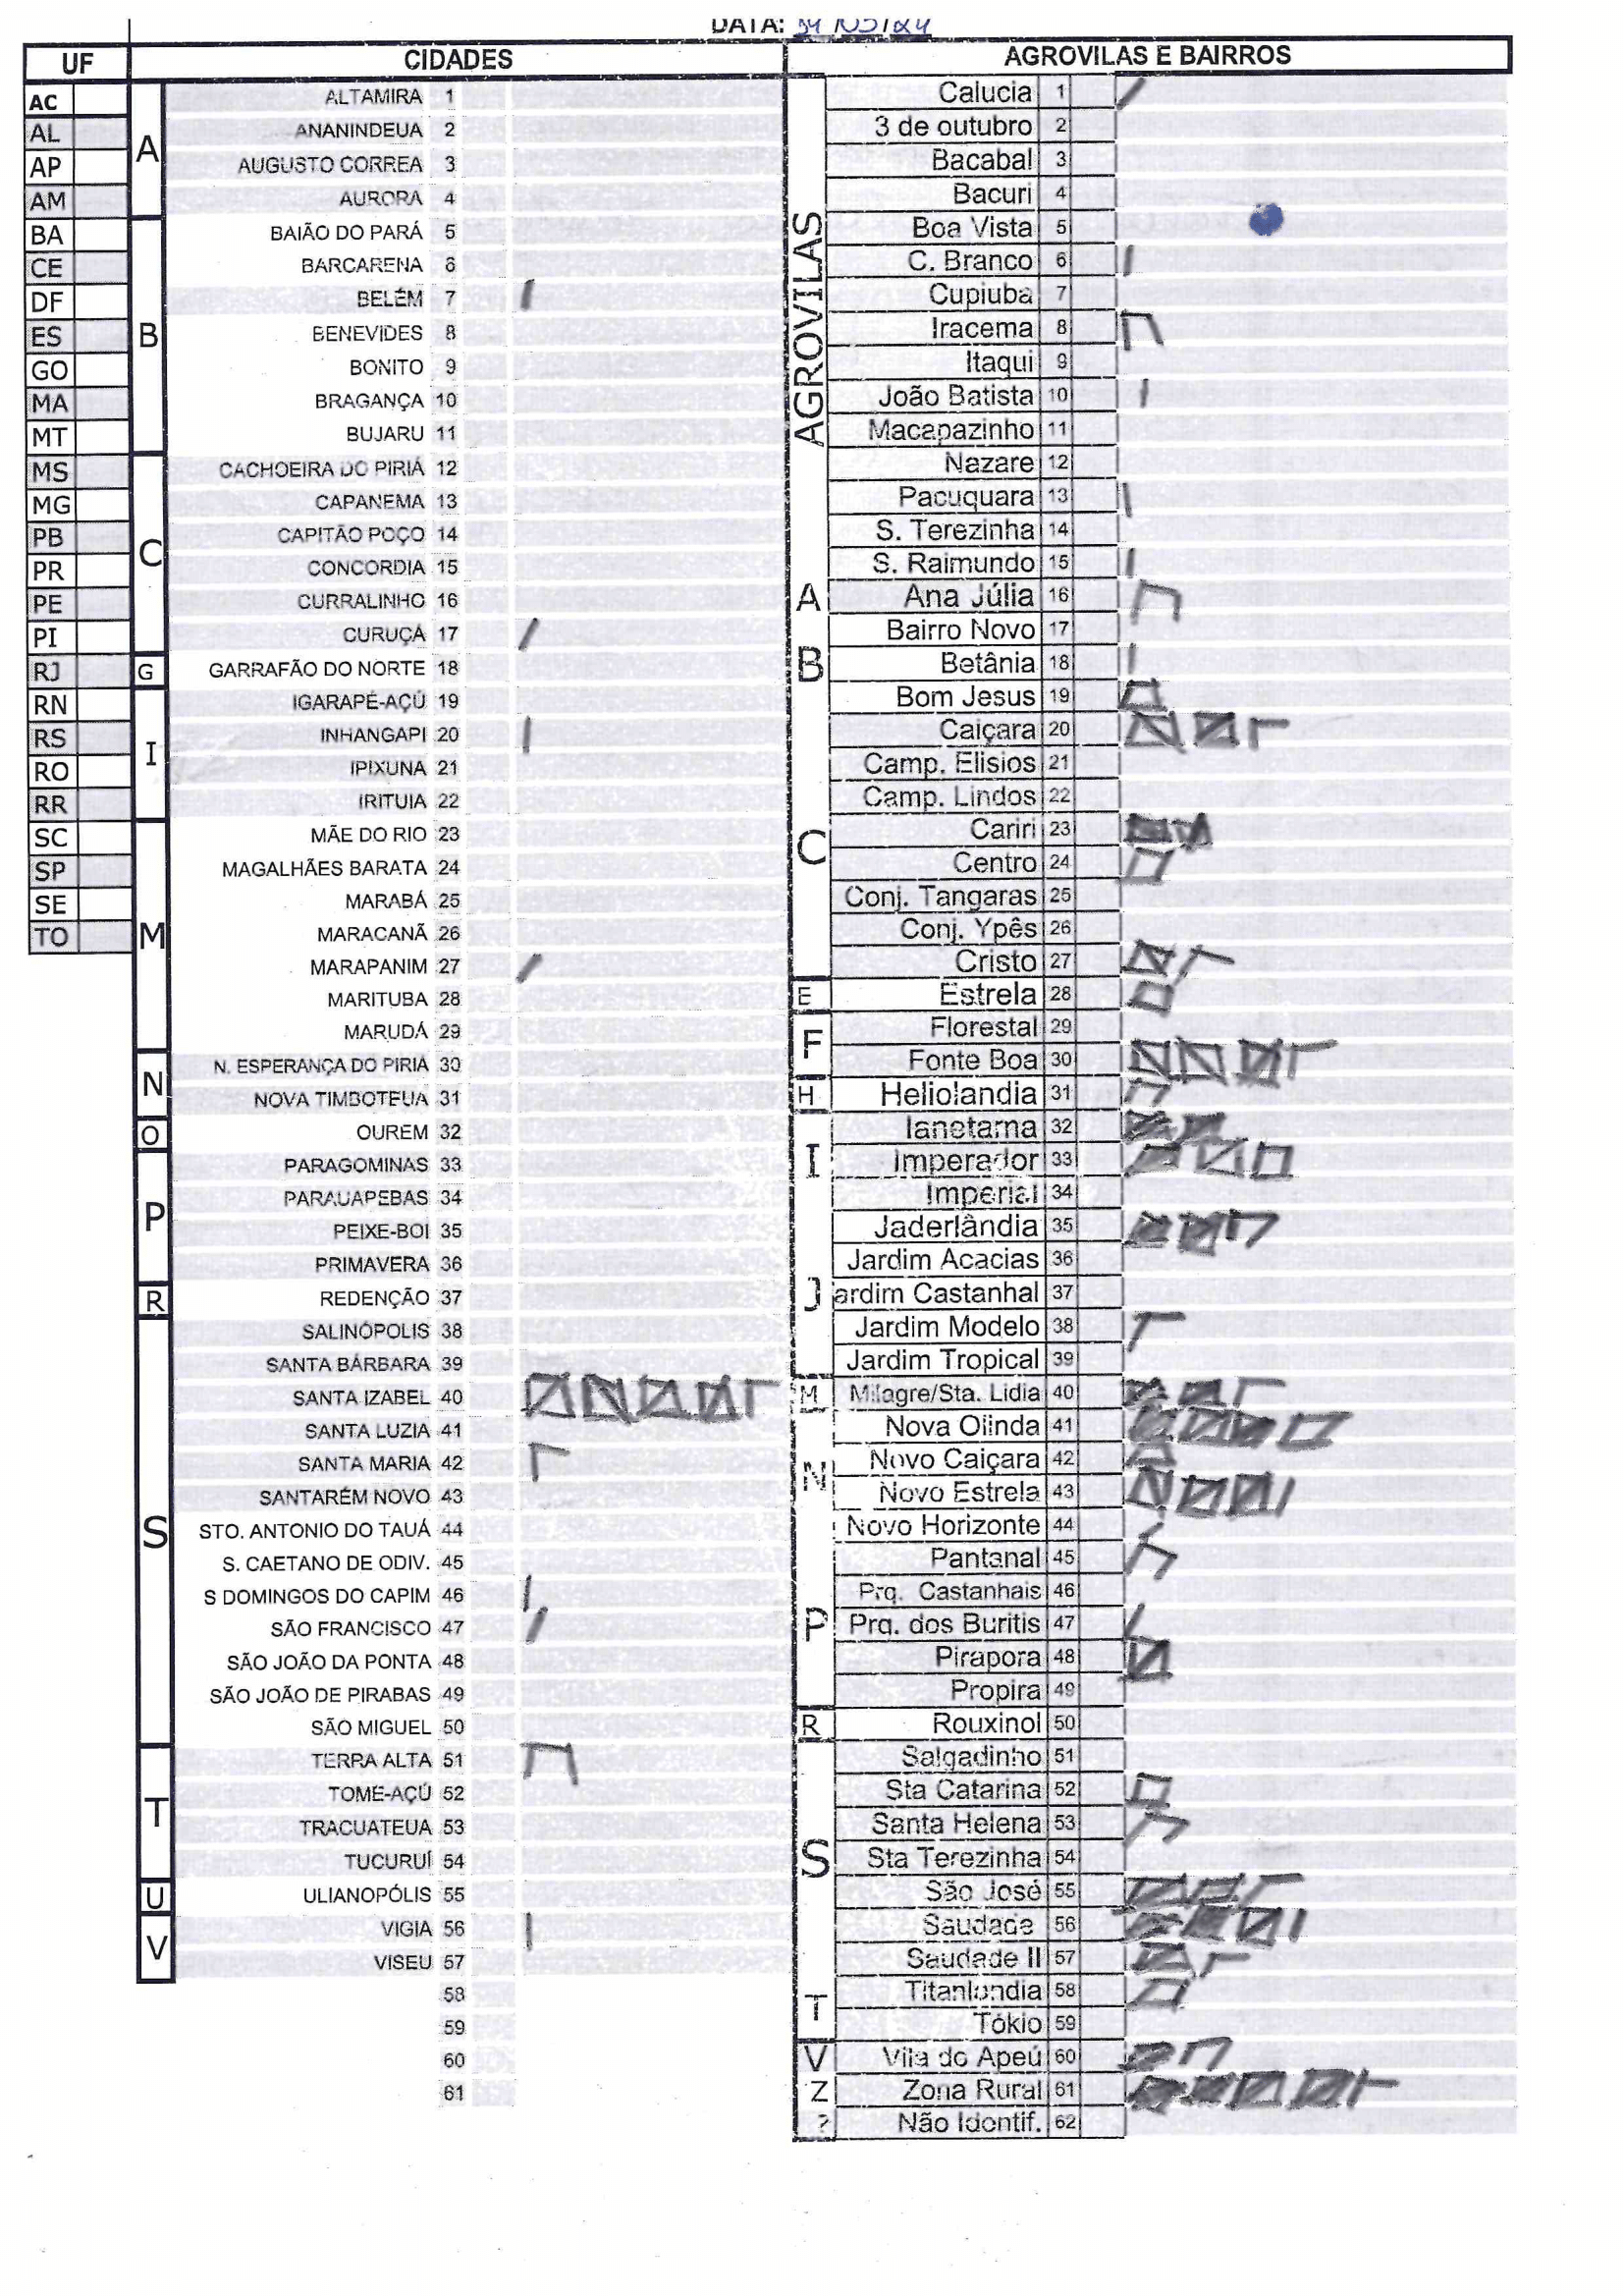 DATA: 
UF CIDADES AGROVILAS E BAIRROS
AC
AL
AP
AM
BA
CE
DF
ES
GO
MA
MT
MS
MG
PB
PR
PE
PI
RJ
RN
RS
RO
RR
SC
SP
SE
TO
A
ALTAMIRA 1
ANANINDEUA 2
AUGUSTO CORREA 3
AURORA 4
B
BAIÃO DO PARÁ 5
BARCARENA 6
BELÉM 7
BENEVIDES 8
BONITO 9
BRAGANÇA 10
BUJARU 11
C
CACHOEIRA DO PIRIÁ 12
CAPANEMA 13
CAPITÃO POÇO 14
CONCORDIA 15
CURRALINHO 16
CURUÇÁ 17
G
GARRAFÃO DO NORTE 18
I
IGARAPÉ-AÇÚ 19
INHANGAPI 20
IPIXUNA 21
IRITUIA 22
M
MÃE DO RIO 23
MAGALHÃES BARATA 24
MARABÁ 25
MARACANÃ 26
MARAPANIM 27
MARITUBA 28
MARUDÁ 29
N
N. ESPERANÇA DO PIRIA 30
NOVA TIMBOTEUA 31
O
OUREM 32
P
PARAGOMINAS 33
PARAUAPEBAS 34
PEIXE-BOI 35
PRIMAVERA 36
R
REDENÇÃO 37
S
SALINÓPOLIS 38
SANTA BÁRBARA 39
SANTA IZABEL 40
SANTA LUZIA 41
SANTA MARIA 42
SANTARÉM NOVO 43
STO. ANTONIO DO TAUÁ 44
S. CAETANO DE ODIV. 45
S DOMINGOS DO CAPIM 46
SÃO FRANCISCO 47
SÃO JOÃO DA PONTA 48
SÃO JOÃO DE PIRABAS 49
SÃO MIGUEL 50
T
TERRA ALTA 51
TOME-AÇÚ 52
TRACUATEUA 53
TUCURUÍ 54
U
ULIANOPÓLIS 55
V
VIGIA 56
VISEU 57
58
59
60
61
AGROVILAS
Calucia 1
3 de outubro 2
Bacabal 3
Bacuri 4
Boa Vista 5
C. Branco 6
Cupiuba 7
Iracema 8
Itaqui 9
João Batista 10
Macapazinho 11
Nazare 12
Pacuquara 13
S. Terezinha 14
S. Raimundo 15
A
Ana Júlia 16
B
Bairro Novo 17
Betânia 18
Bom Jesus 19
C
Caiçara 20
Camp. Elisios 21
Camp. Lindos 22
Cariri 23
Centro 24
Conj. Tangaras 25
Conj. Ypês 26
Cristo 27
E
Estrela 28
F
Florestal 29
Fonte Boa 30
H
Heliolandia 31
I
Ianetama 32
Imperador 33
Imperial 34
J
Jaderlândia 35
Jardim Acacias 36
ardim Castanhal 37
Jardim Modelo 38
Jardim Tropical 39
M
Milagre/Sta. Lidia 40
N
Nova Olinda 41
Novo Caiçara 42
Novo Estrela 43
Novo Horizonte 44
P
Pantanal 45
Prq. Castanhais 46
Prq. dos Buritis 47
Pirapora 48
Propira 49
R
Rouxinol 50
S
Salgadinho 51
Sta Catarina 52
Santa Helena 53
Sta Terezinha 54
São José 55
Saudade 56
Saudade II 57
T
Titanlandia 58
Tókio 59
V
Vila do Apeú 60
Z
Zona Rural 61
?
Não Identif. 62